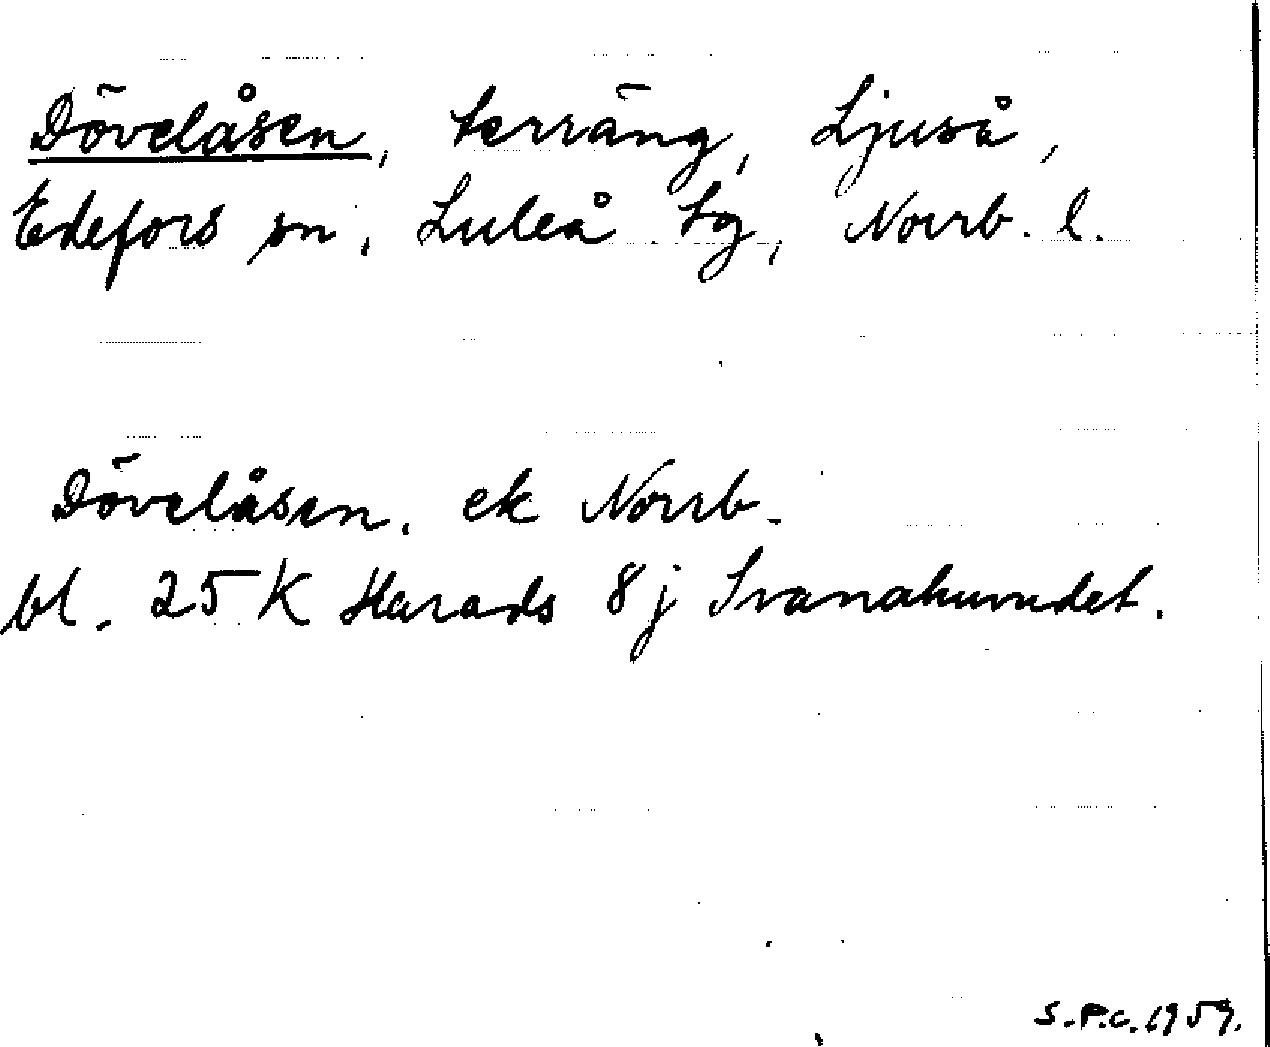 Dövelåsen, terräng, Ljuså,
Edefors sn, Luleå tg, Norrb. l.
Dövelåsen, ek Norrb.
bl. 25 K Harads 8 j Svanahuvudet.
S.P.C. 1959.